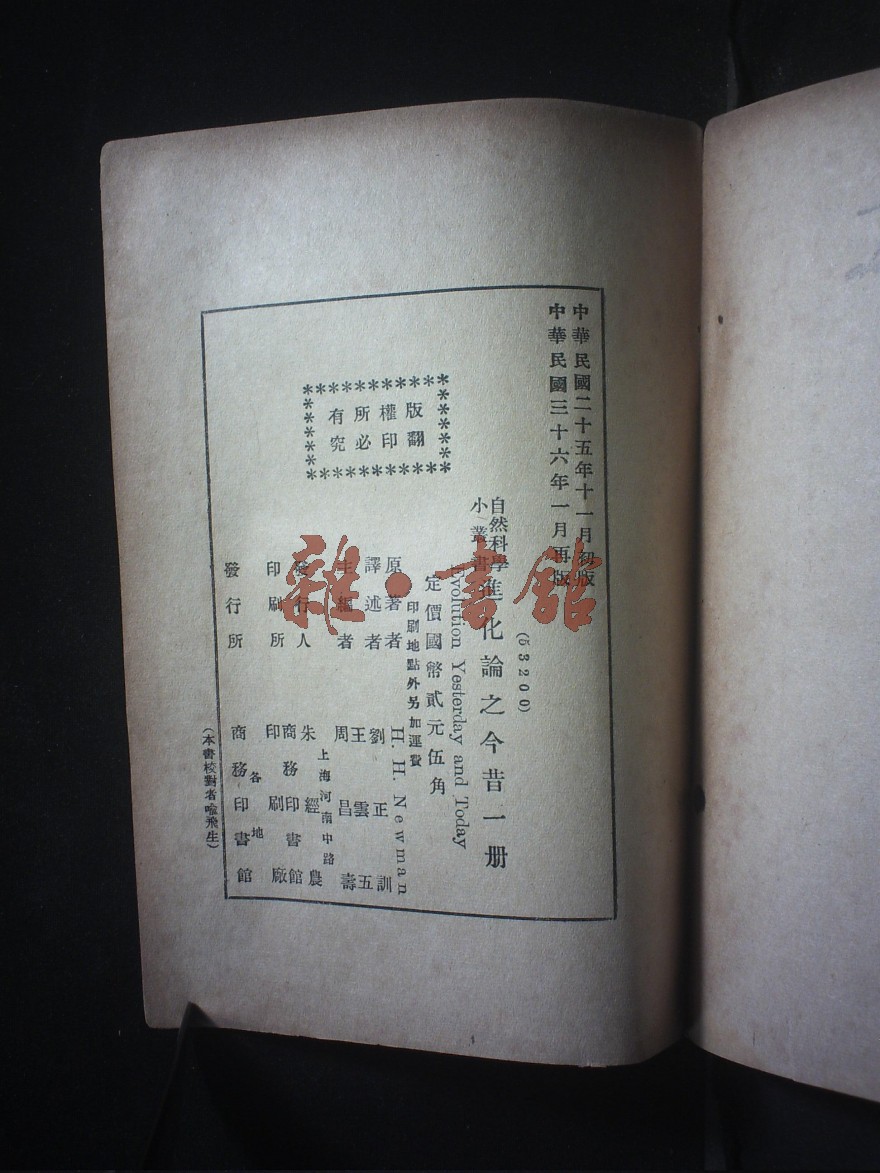 中華民國二十五年十一月初版
中華民國三十六年一月再版
(53200)
自然科學
小叢書
進化論之今昔一册
Evolution Yesterday and Today
定價國幣貳元伍角
印刷地點外另加運費
版權所有
翻印必究
原著者 H. H. Newman
譯述者 劉正訓
主編者 王雲五
周昌壽
上海河南中路
發行人 朱經農
印刷所 商務印書館
印刷廠
發行所 各地
商務印書館
(本書校對者喻飛生)
雜·書館